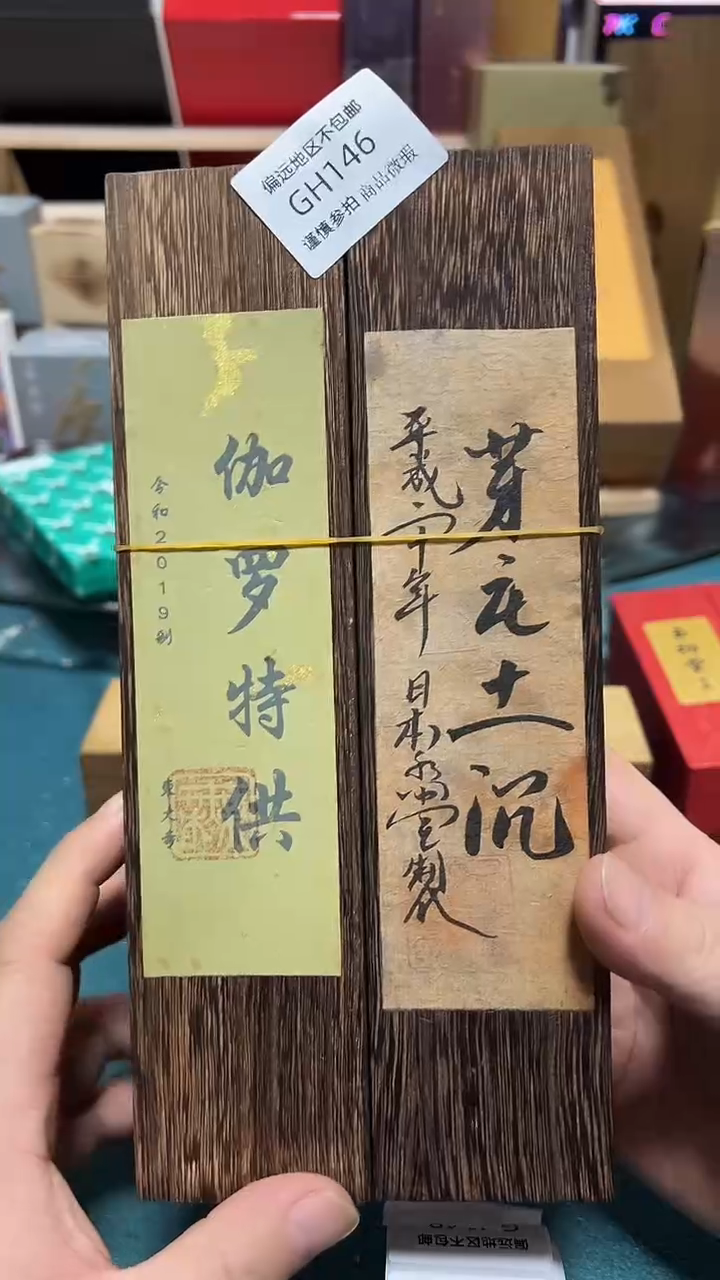 偏远地区不包邮
GH146
谨慎参拍 商品微瑕
伽罗特供
令和2019制
東大寺
芽庄土沉
平成二十年 日本永尚堂製
偏远地区不包邮